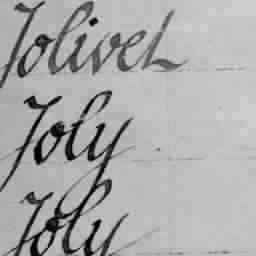 Jolivet
Joly
Joly